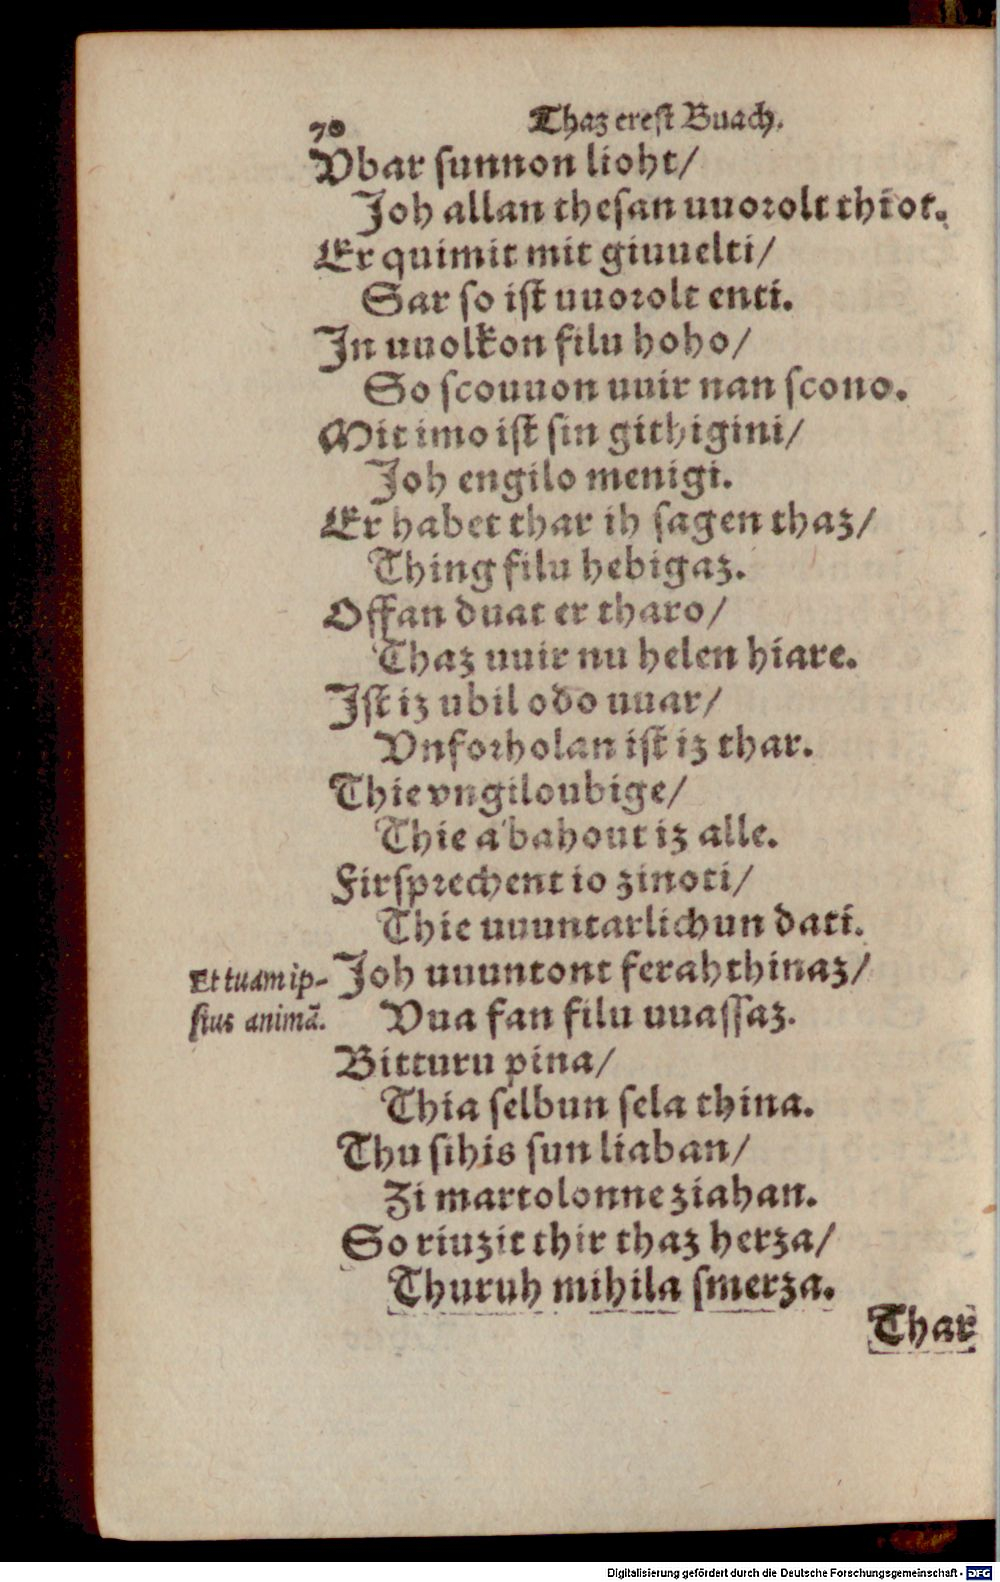 70 Thaz erest Buach.
Vbar sunnon lioht/
Joh allan thesan uuorolt thiot.
Er quimit mit giuuelti/
Sar so ist uuorolt enti.
Jn uuolkon filu hoho/
So scouuon uuir nan scono.
Mit imo ist sin githigini/
Joh engilo menigi.
Er habet thar ih sagen thaz/
Thing filu hebigaz.
Offan duat er tharo/
Thaz uuir nu helen hiare.
Jst iz ubil odo uuar/
Vnforholan ist iz thar.
Thie vngiloubige/
Thie a bahout iz alle.
Firsprechent io zinoti/
Thie uuuntarlichun dati.
Joh uuuntont ferah thinaz/
Et tuam ip-
sius animā.
Vua fan filu uuassaz.
Bitturu pina/
Thia selbun sela thina.
Thu sihis sun liaban/
Zi martolonne ziahan.
So riuzit thir thaz herza/
Thuruh mihila smerza.
Thar
Digitalisierung gefördert durch die Deutsche Forschungsgemeinschaft - DFG